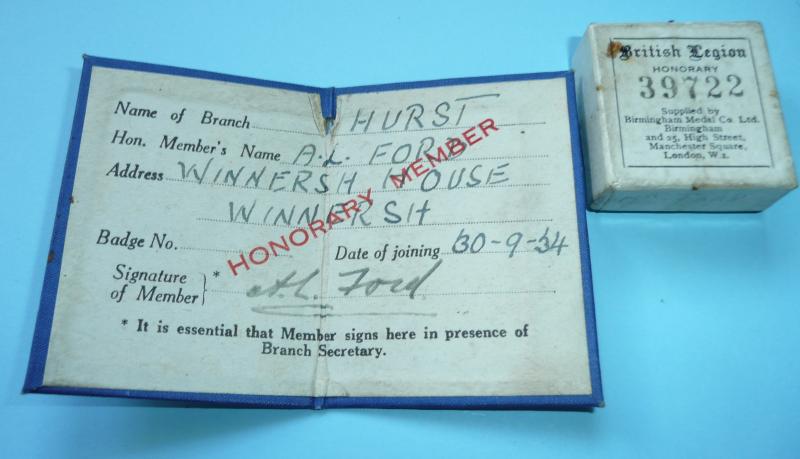 Name of Branch HURST
Hon. Member's Name A.L. FORD
Address WINNERSH HOUSE
WINNERSH
Badge No. Date of joining 30-9-34
Signature of Member } * A.L. Ford
* It is essential that Member signs here in presence of
Branch Secretary.
HONORARY MEMBER
British Legion
HONORARY
39722
Supplied by
Birmingham Medal Co. Ltd.
Birmingham
and 25, High Street,
Manchester Square,
London, W.1.